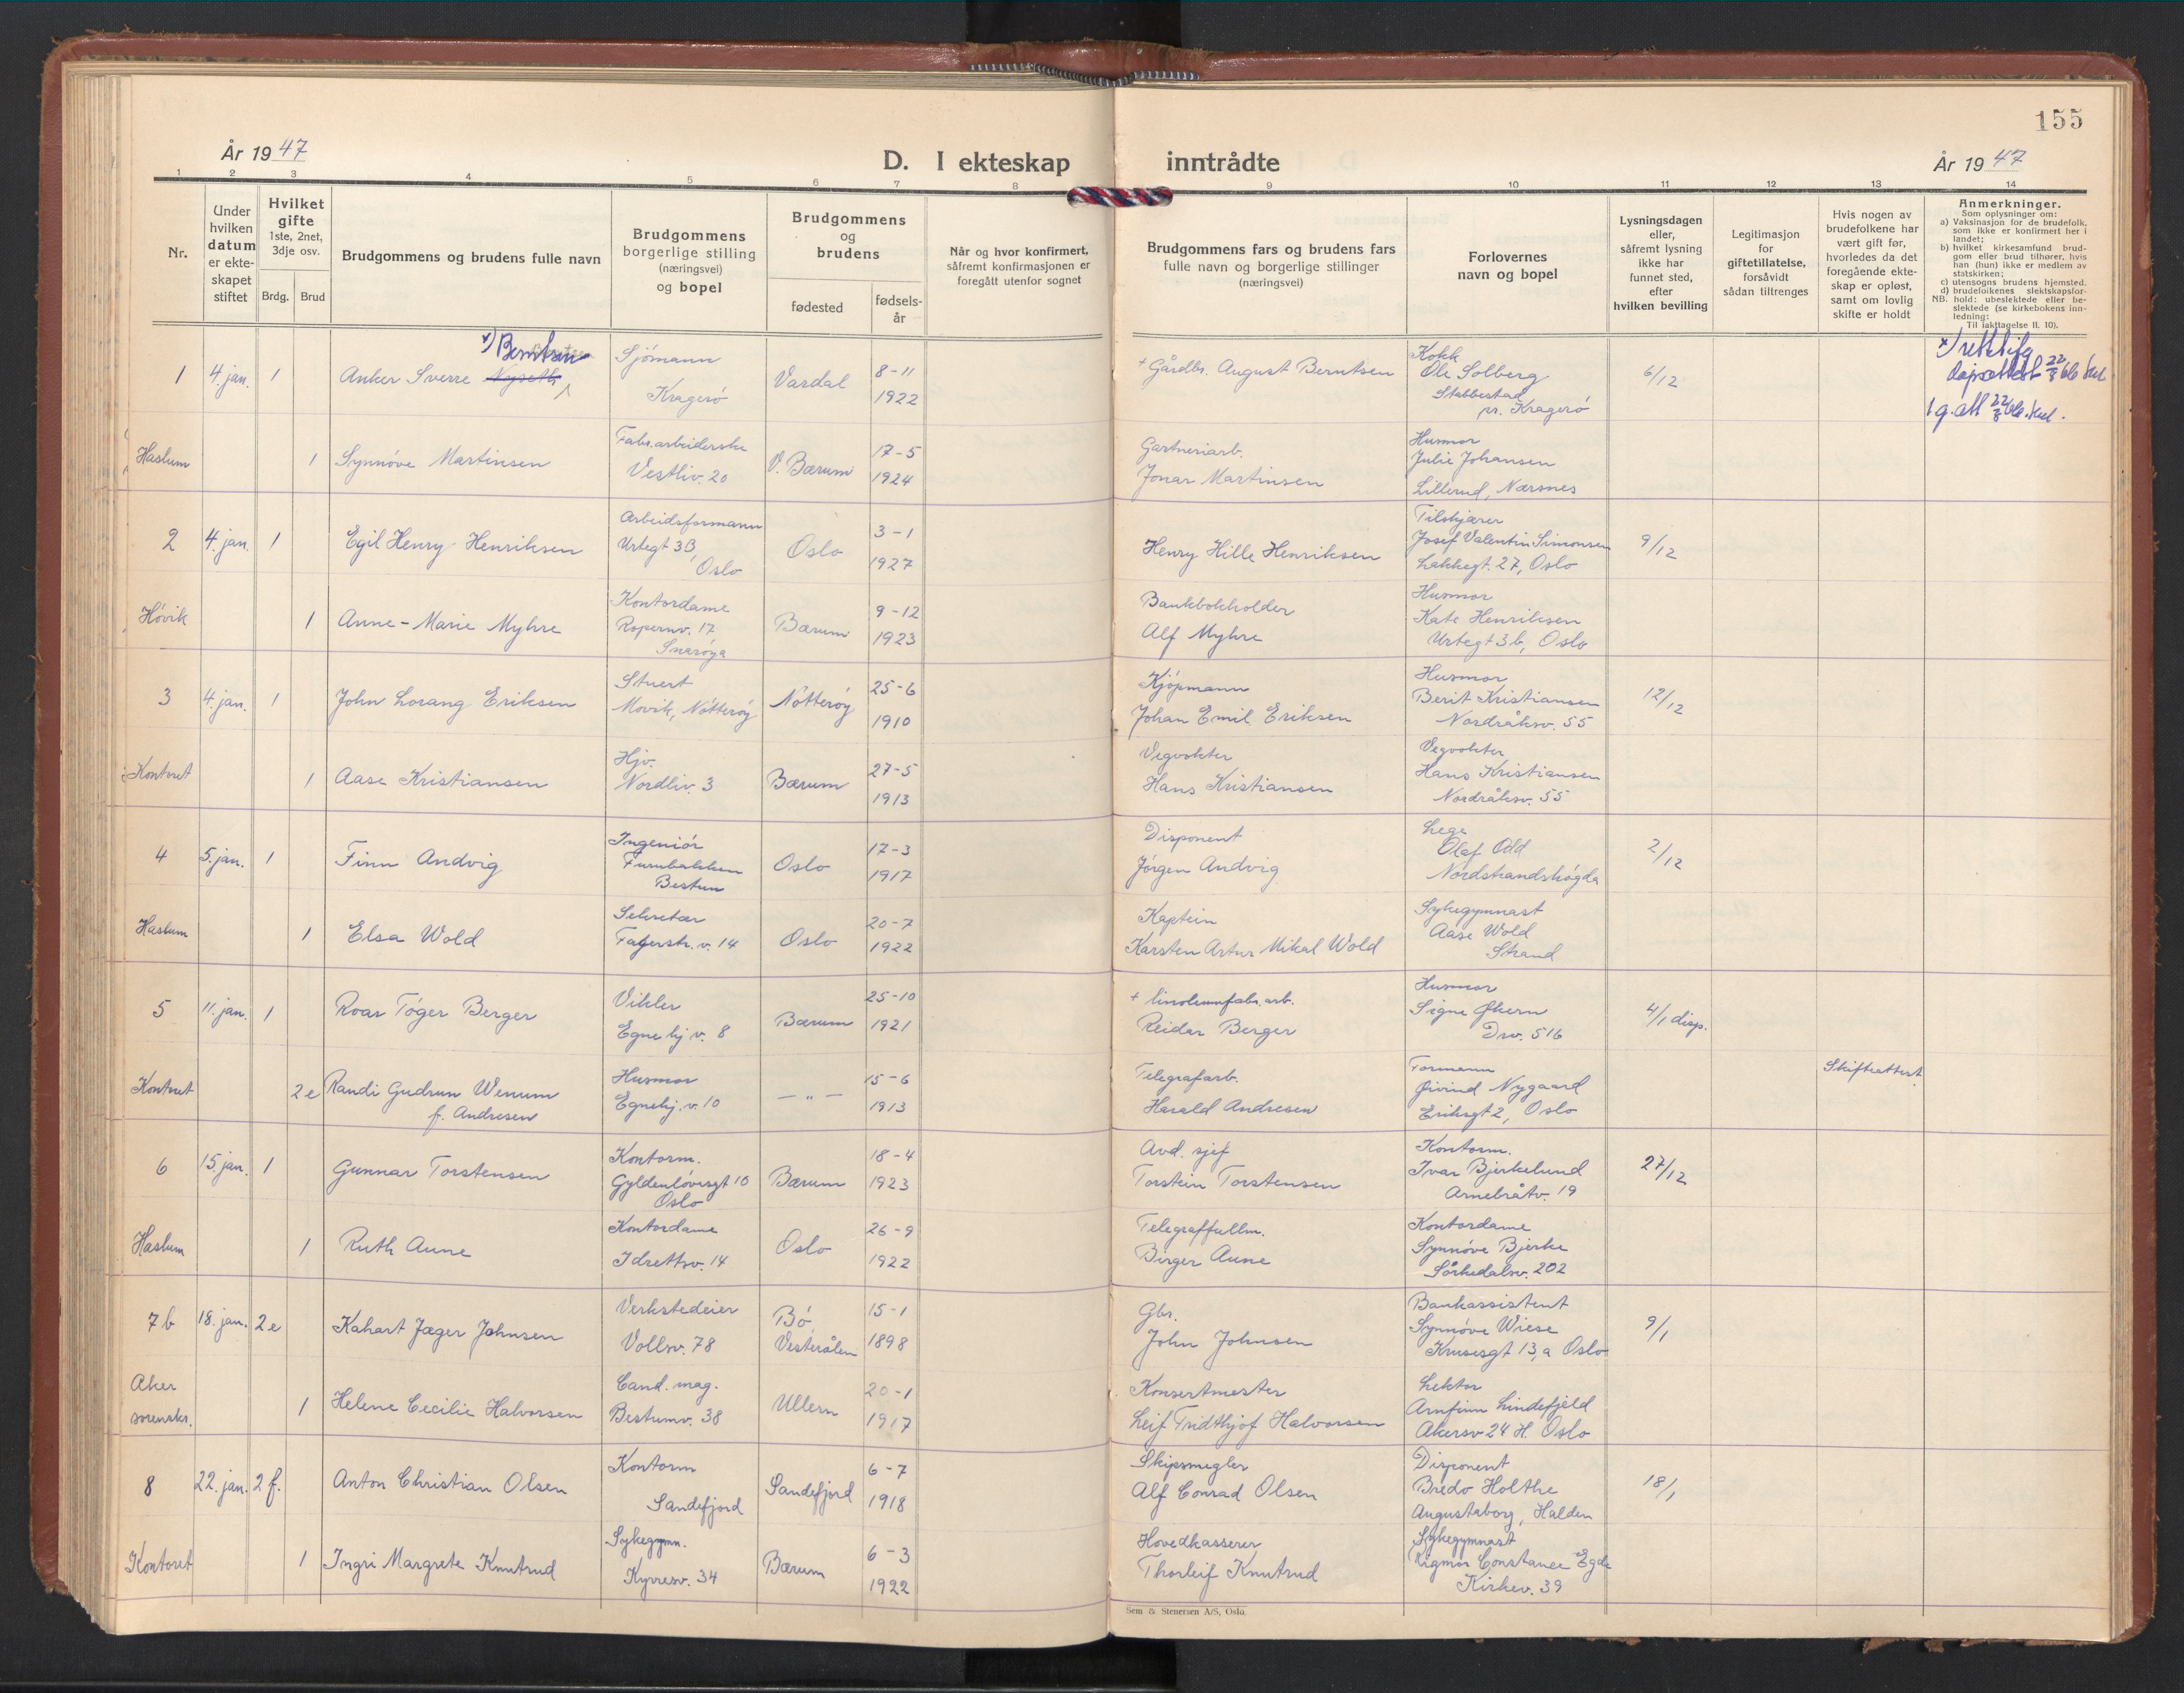 155
År 1947
D. I ekteskap inntrådte
År 1947
1 2 3 4 5 6 7 8 9 10 11 12 13 14
Nr.
Under hvilken datum er ekte-skapet stiftet
Hvilket gifte 1ste, 2net, 3dje osv.
Brdg. Brud
Brudgommens og brudens fulle navn
Brudgommens borgerlige stilling (næringsvei) og bopel
Brudgommens og brudens
fødested
fødsels-år
Når og hvor konfirmert, såfremt konfirmasjonen er foregått utenfor sognet
Brudgommens fars og brudens fars fulle navn og borgerlige stillinger (næringsvei)
Forlovernes navn og bopel
Lysningsdagen eller, såfremt lysning ikke har funnet sted, efter hvilken bevilling
Legitimasjon for giftetillatelse, forsåvidt sådan tiltrenges
Hvis nogen av brudefolkene har vært gift før, hvorledes da det foregående ekte-skap er opløst, samt om lovlig skifte er holdt
Anmerkninger.
Som oplysninger om:
a) Vaksinasjon for de brudefolk, som ikke er konfirmert her i landet;
b) hvilket kirkesamfund brud-gom eller brud tilhører, hvis han (hun) ikke er medlem av statskirken;
c) utensogns brudens hjemsted.
d) brudefolkenes slektskapsfor-
NB. hold: ubeslektede eller be-slektede (se kirkebokens inn-ledning:
Til iakttagelse II. 10).
1 4. jan. 1 Anker Sverre Nyseth x) Berntsen
Sjømann
Kragerø
Vardal
8-11
1922
+ Gårdbr. August Berntsen
Kokk
Ole Solberg
Stabbestad
pr. Kragerø
6/12
Haslum 1 Synnøve Martinsen
Fabr.arbeiderske
Vestliv. 20
V. Bærum
17-5
1924
Gartneriarb.
Jonar Martinsen
Husmor
Julie Johansen
Lillerud, Nærsnes
2 4. jan. 1 Egil Henry Henriksen
Arbeidsformann
Urtegt 3B,
Oslo
Oslo
3-1
1927
Henry Hille Henriksen
Tilskjærer
Josef Valentin Simonsen
Lakkegt. 27, Oslo
9/12
Høvik 1 Anne-Marie Myhre
Kontordame
Ropernv. 17
Snarøya
Bærum
9-12
1923
Bankbokholder
Alf Myhre
Husmor
Kate Henriksen
Urtegt 3b, Oslo
3 4. jan. 1 John Lorang Eriksen
Stuert
Movik, Nøtterøy
Nøtterøy
25-6
1910
Kjøpmann
Johan Emil Eriksen
Husmor
Berit Kristiansen
Nordråksv. 55
12/12
Kontoret 1 Aase Kristiansen
Hjv.
Nordliv. 3
Bærum
27-5
1913
Vegvokter
Hans Kristiansen
Vegvokter
Hans Kristiansen
Nordråksv. 55
4 5. jan. 1 Finn Andvig
Ingeniør
Furubakken
Bestun
Oslo
17-3
1917
Disponent
Jørgen Andvig
Lege
Olaf Odd
Nordstrandshøgda
2/12
Haslum 1 Elsa Wold
Sekretær
Fagerstr. v. 14
Oslo
20-7
1922
Kaptein
Karsten Artur Mikal Wold
Sykegymnast
Aase Wold
Strand
5 11. jan. 1 Roar Tøger Berger
Vikler
Egne hj v. 8
Bærum
25-10
1921
+ linoleumfabr. arb.
Reidar Berger
Husmor
Signe Økern
Drv. 516
4/1 disp.
Kontoret 2e Randi Gudrun Wenum
f. Andresen
Husmor
Egnehj. v. 10
— " —
15-6
1913
Telegrafarb.
Harald Andresen
Formann
Øivind Nygaard
Eriksgt 2, Oslo
Skifteattest
6 15. jan. 1 Gunnar Torstensen
Kontorm.
Gyldenløvesgt 10
Oslo
Bærum
18-4
1923
Avd. sjef
Torstein Torstensen
Kontorm.
Ivar Bjerkelund
Arnebråtv. 19
27/12
Haslum 1 Ruth Aune
Kontordame
Idrettsv. 14
Oslo
26-9
1922
Telegraffullm.
Birger Aune
Kontordame
Synnøve Bjerke
Sørkedalsv. 202
7b 18. jan. 2e Kahart Jæger Johnsen
Verkstedeier
Vollsv. 78
Bø
Vesterålen
15-1
1898
Gbr.
John Johnsen
Bankassistent
Synnøve Wiese
Krusesgt 13,a Oslo
9/1
Aker
sorenskr. 1 Helene Cecilie Halvorsen
Cand. mag.
Bestumv. 38
Ullern
20-1
1917
Konsertmester
Leif Fridthjof Halvorsen
Lektor
Arnfinn Lindefjeld
Akersv 24 H. Oslo
8 22. jan. 2 f. Anton Christian Olsen
Kontorm
Sandefjord
Sandefjord
6-7
1918
Skipsmegler
Alf Conrad Olsen
Disponent
Bredo Holthe
Augustaborg, Halden
18/1
Kontoret 1 Ingri Margrete Knutrud
Sykegymn.
Kyrresv. 34
Bærum
6-3
1922
Hovedkasserer
Thorleif Knutrud
Sykegymnast
Rigmor Constance Egde
Kirkev. 39
Sem & Stenersen A/S, Oslo.